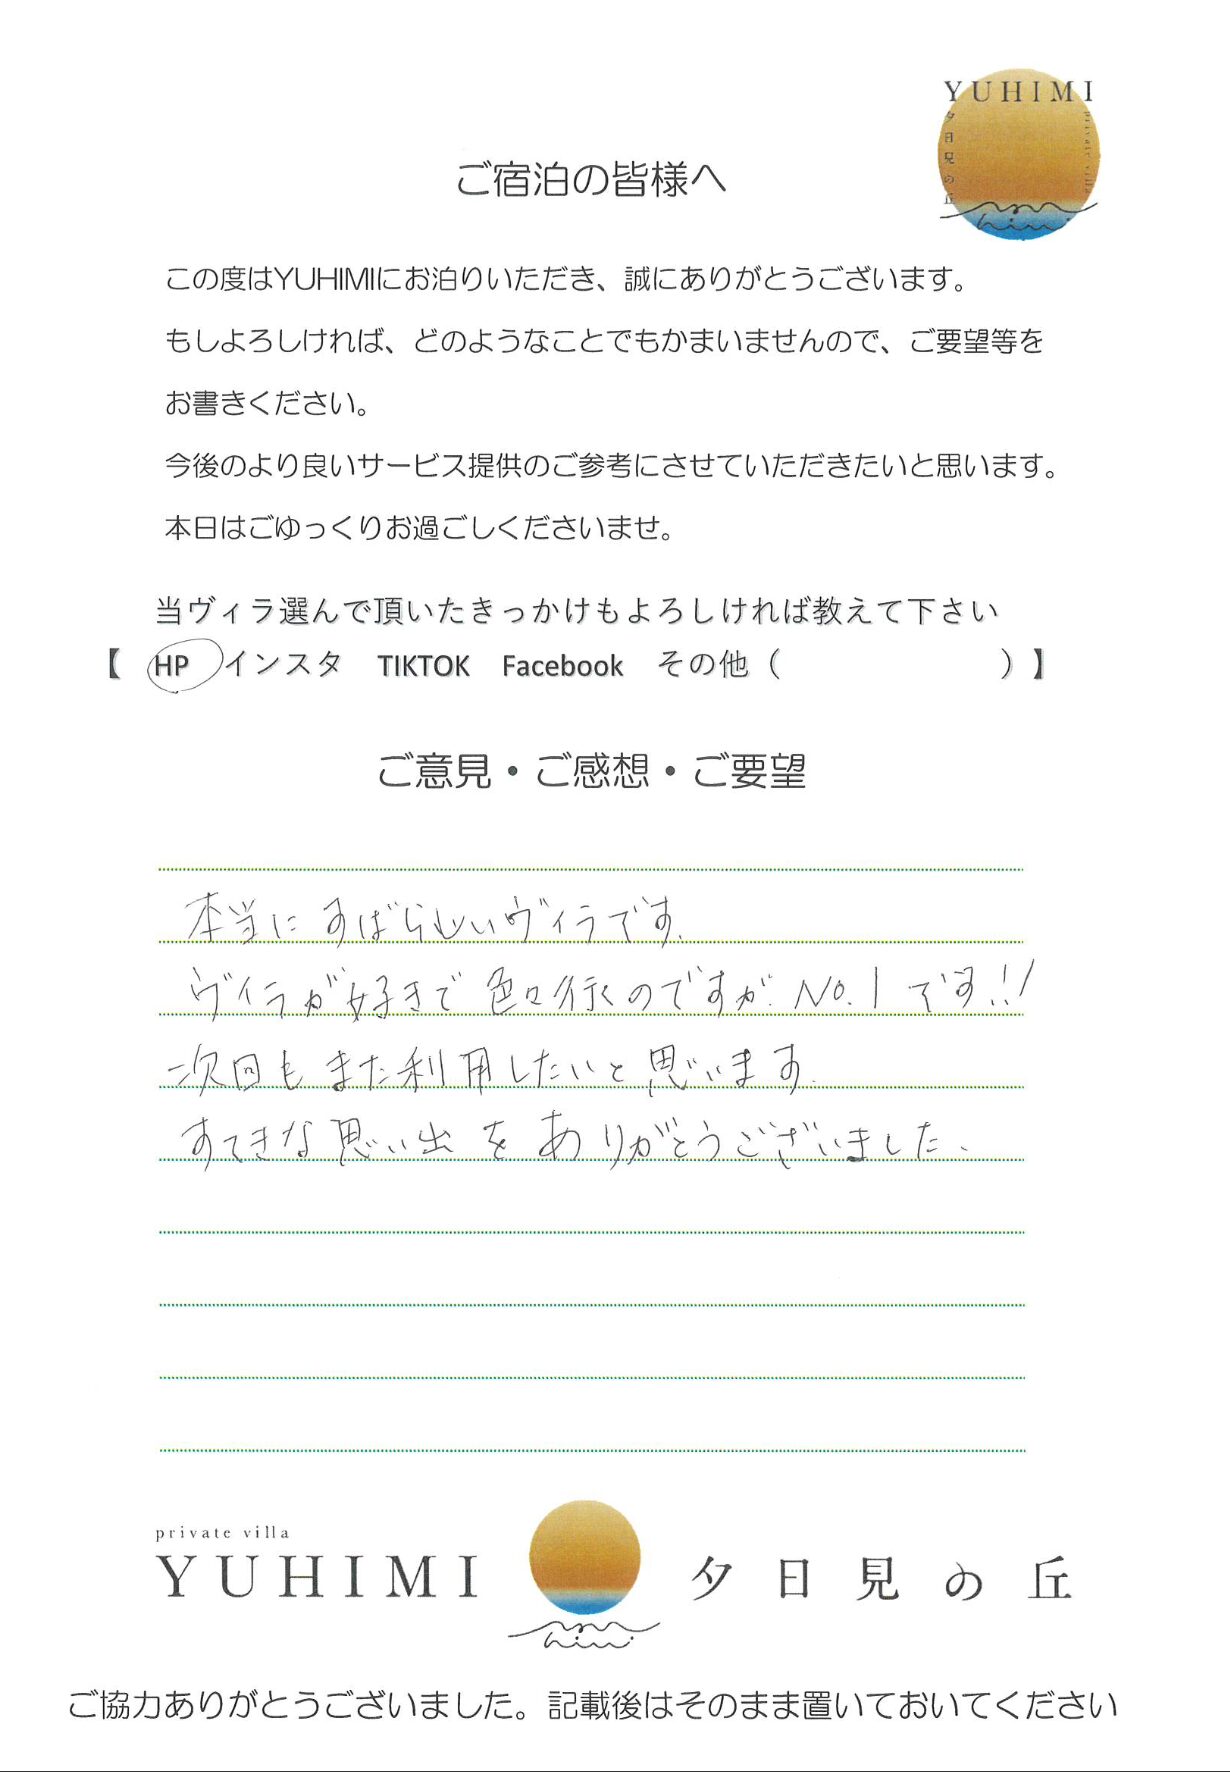 YUHIMI
夕日見の丘
private villa
ご宿泊の皆様へ
この度はYUHIMIにお泊りいただき、誠にありがとうございます。
もしよろしければ、どのようなことでもかまいませんので、ご要望等を
お書きください。
今後のより良いサービス提供のご参考にさせていただきたいと思います。
本日はごゆっくりお過ごしくださいませ。
当ヴィラ選んで頂いたきっかけもよろしければ教えて下さい
【 HP インスタ TIKTOK Facebook その他（ ）】
ご意見・ご感想・ご要望
本当にすばらしいヴィラです。
ヴィラが好きで色々行くのですが、No.1です!!
次回もまた利用したいと思います。
すてきな思い出をありがとうございました、
private villa
YUHIMI 夕日見の丘
ご協力ありがとうございました。記載後はそのまま置いておいてください